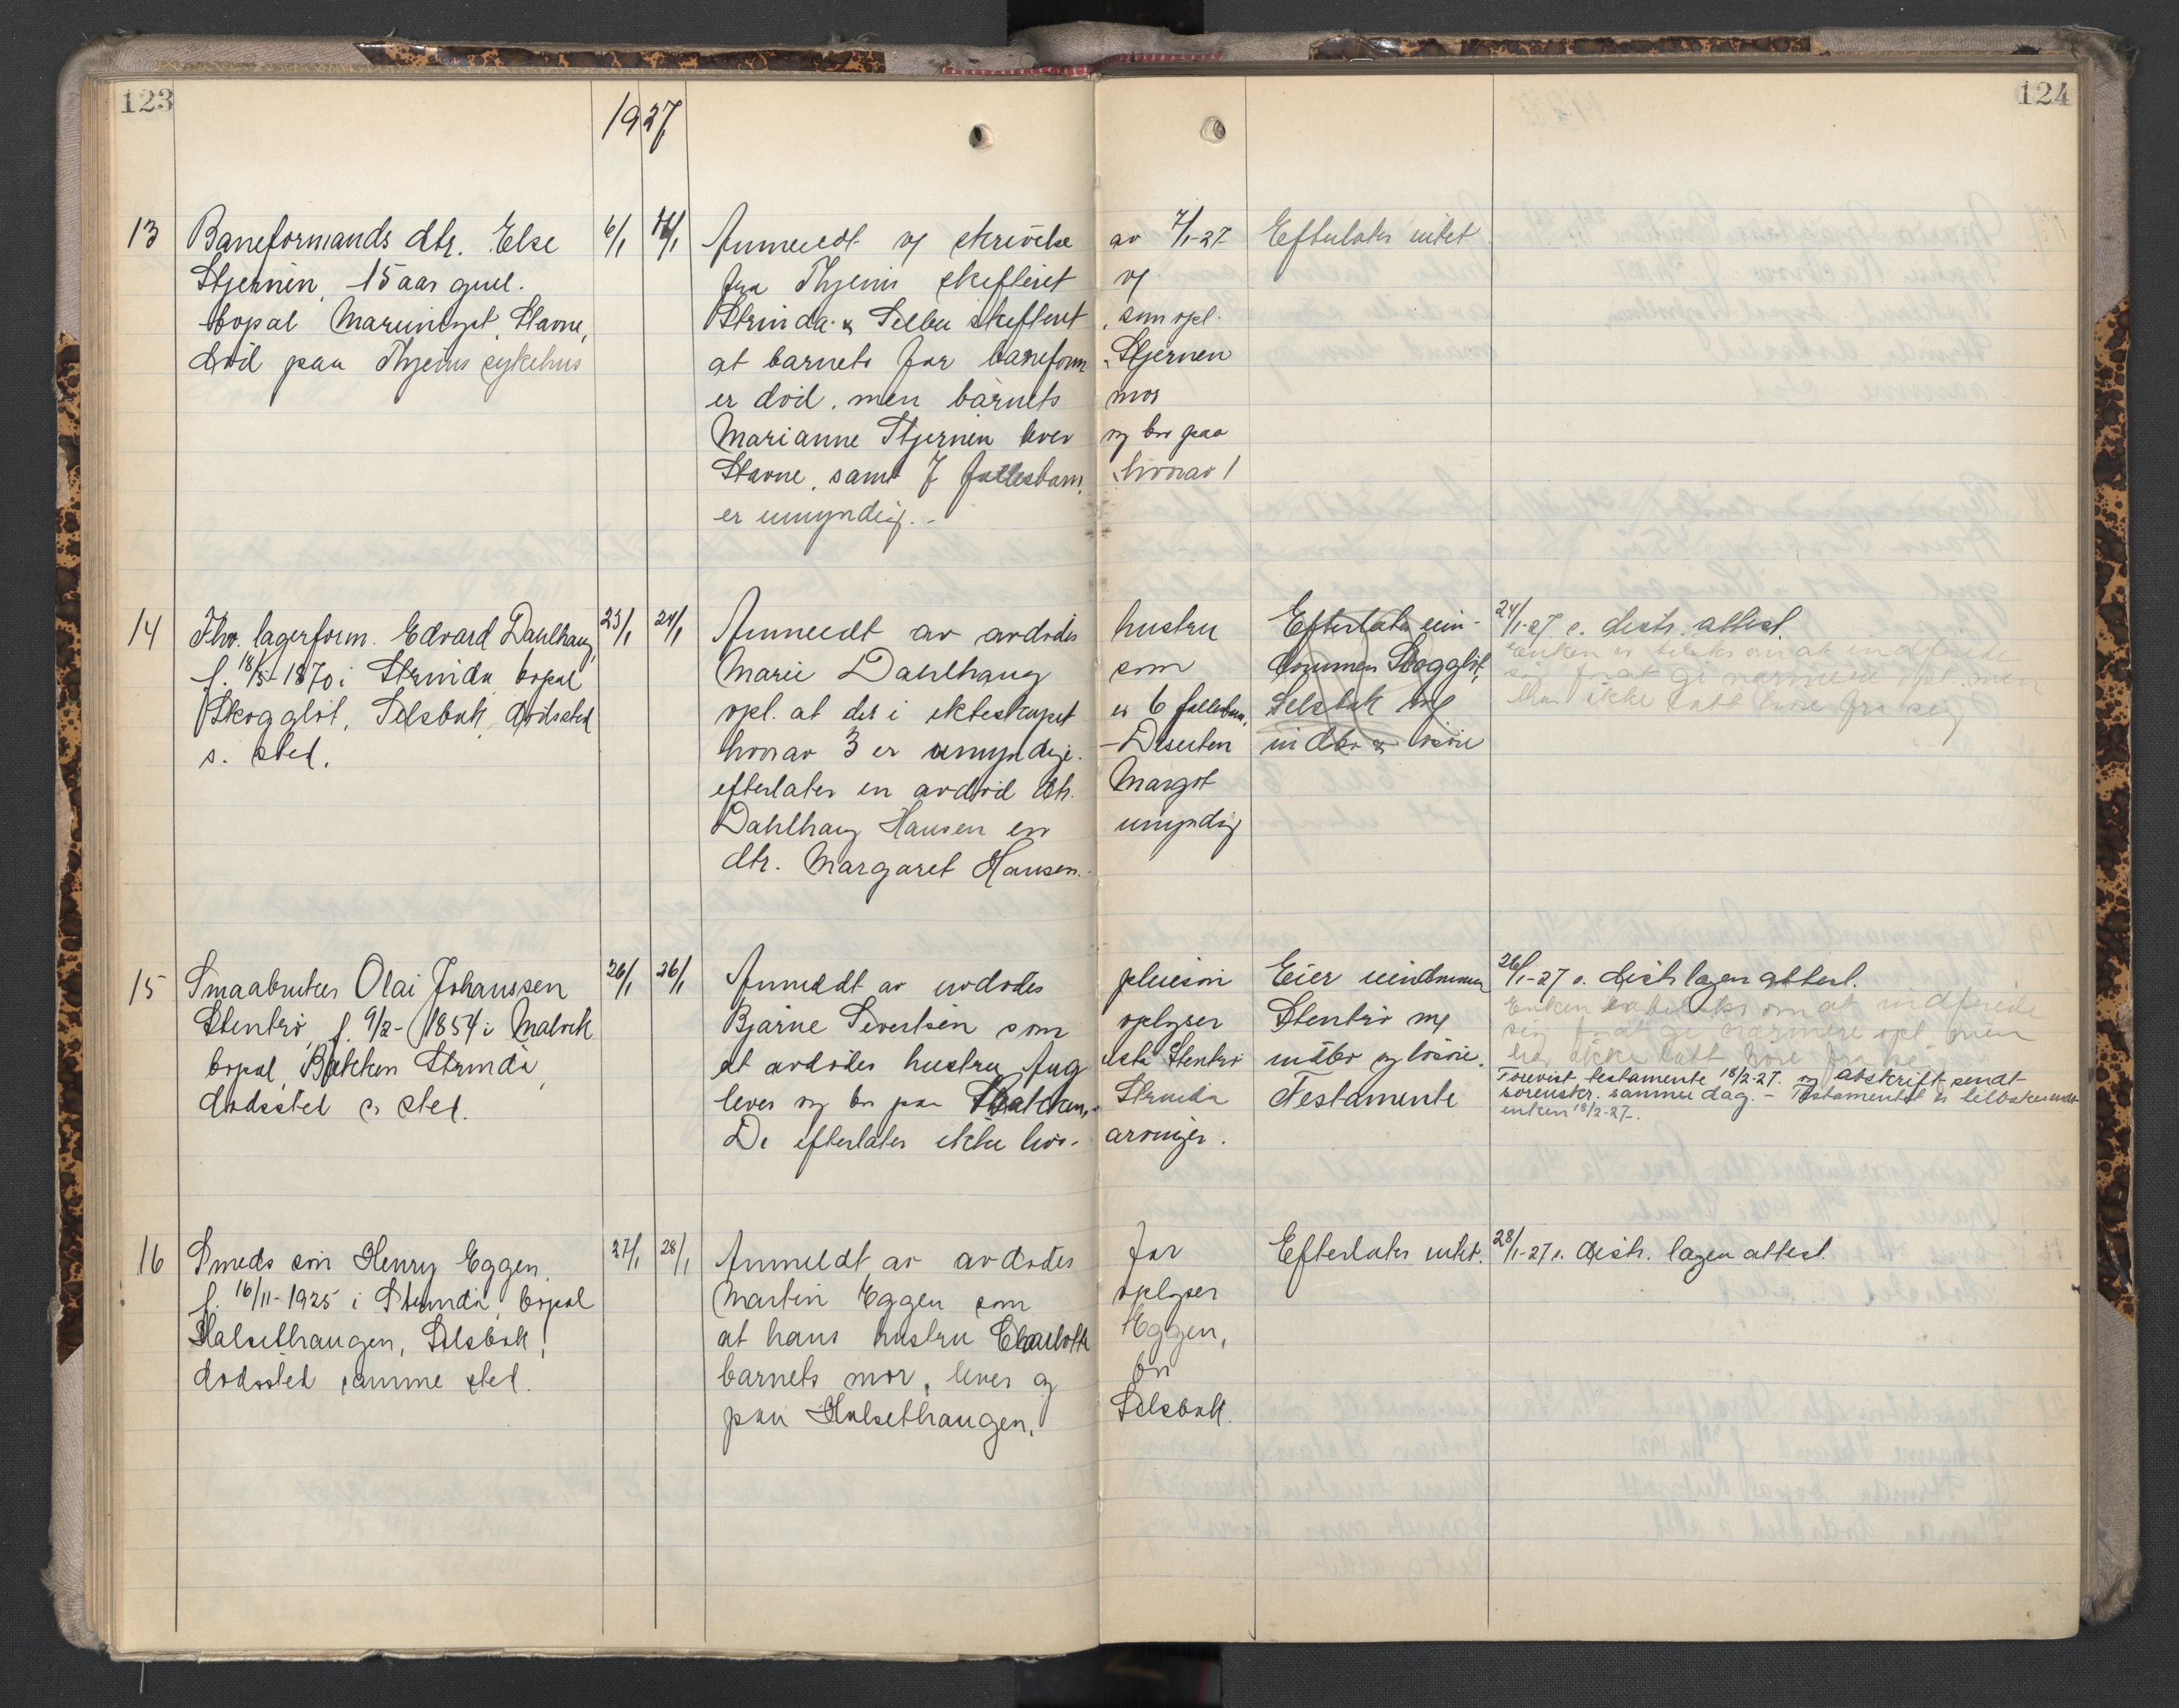 123
124
1927
13 Baneformands dtr. Else 6/1 Anmeldt og skrivelse av 7/1-27 Efterlater intet
Stjernen, 15 aar gml. fra Thjems skifteret og
bopæl Stavne, Strinda & Selbu skifteret, som opl.
död paa Thjems sykehus at barnets far baneform. Stjernen
er död, men barnets mor
Marianne Stjernen lever og bor paa
Stavne, samt 7 fællesbarn, hvorav 1
er umyndig. -
14 Fhv. lagerform. Edvard Dahlhaug, 23/1 24/1 Anmeldt av avdødes hustru Efterlater eien- 24/1-27 e. distr. attest.
f. 18/5-1870 i Strinda, bopæl Marie Dahlhaug som dommen Skogglöt, Enken er tilsks. om at indfinde
Skogglöt, Selsbak, dödssted opl. at der i ekteskapet er 6 fællesbarn, Selsbak og sig for at gi nærmere opl. men
s. sted. hvorav 3 er umyndige. - Desuten indbo & lösöre har ikke latt höre fra sig
efterlater en avdöd dtr. Margot
Dahlhaug Hansen en umyndig
dtr. Margaret Hansen.
15 Smaabruker Olai Johanssen 26/1 26/1 Anmeldt av avdödes pleiesön Eier eiendommen 26/1-27 e. distr. lægen attest.
Stentrö, f. 9/2-1854 i Malvik Bjarne Sivertsen som oplyser Stentrö m/ Enken er tilsks om at indfinde
bopæl Bakken Strinda, at avdödes hustru Stentrö indbo og lösöre. sig for at gi nærmere opl. men
dödssted s. sted. lever og bor paa Bakken, Strinda Testamente har ikke latt höre fra sig
De efterlater ikke livs- arvinger.
Forevist testamente 18/2-27. og avskrift sendt
sorenskr. samme dag. - Testamentet er tilbakesendt
enken 18/2-27.
16 Smeds sön Henry Eggen, 27/1 28/1 Anmeldt av avdödes far Efterlater intet. 28/1-27 e. distr. lægen attest.
f. 16/11-1925 i Strinda, bopæl Martin Eggen som oplyser
Halsethaugen, Selsbak, at hans hustru Charlotte Eggen,
dödssted samme sted. barnets mor, lever og bor
paa Halsethaugen, Selsbak.